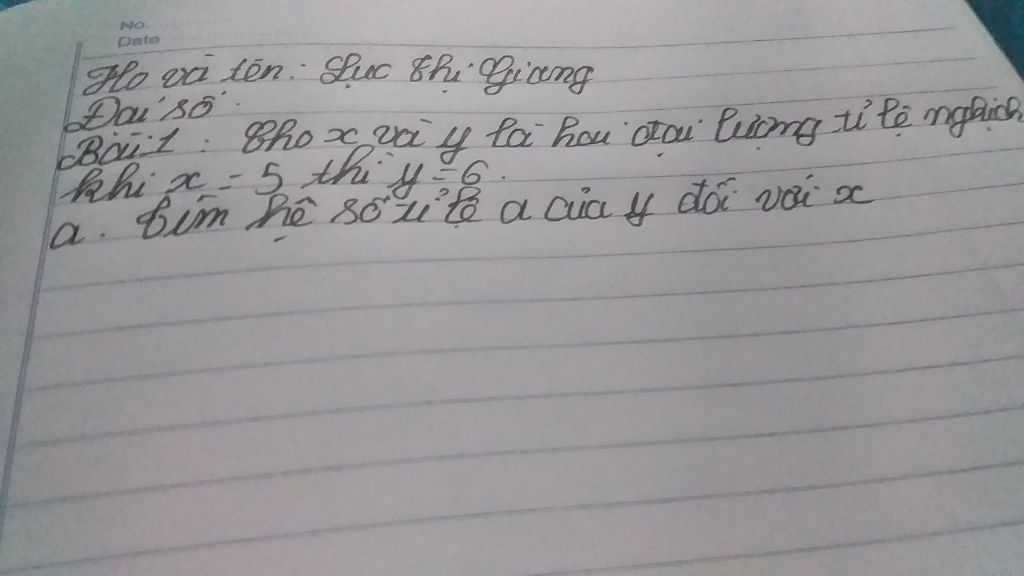 No.
Date
Họ và tên: Lục Thị Giang
Đại số.
Bài 1: Cho x và y là hai đại lượng tỉ lệ nghịch
khi x = 5 thì y = 6.
a. Tìm hệ số tỉ lệ a của y đối với x